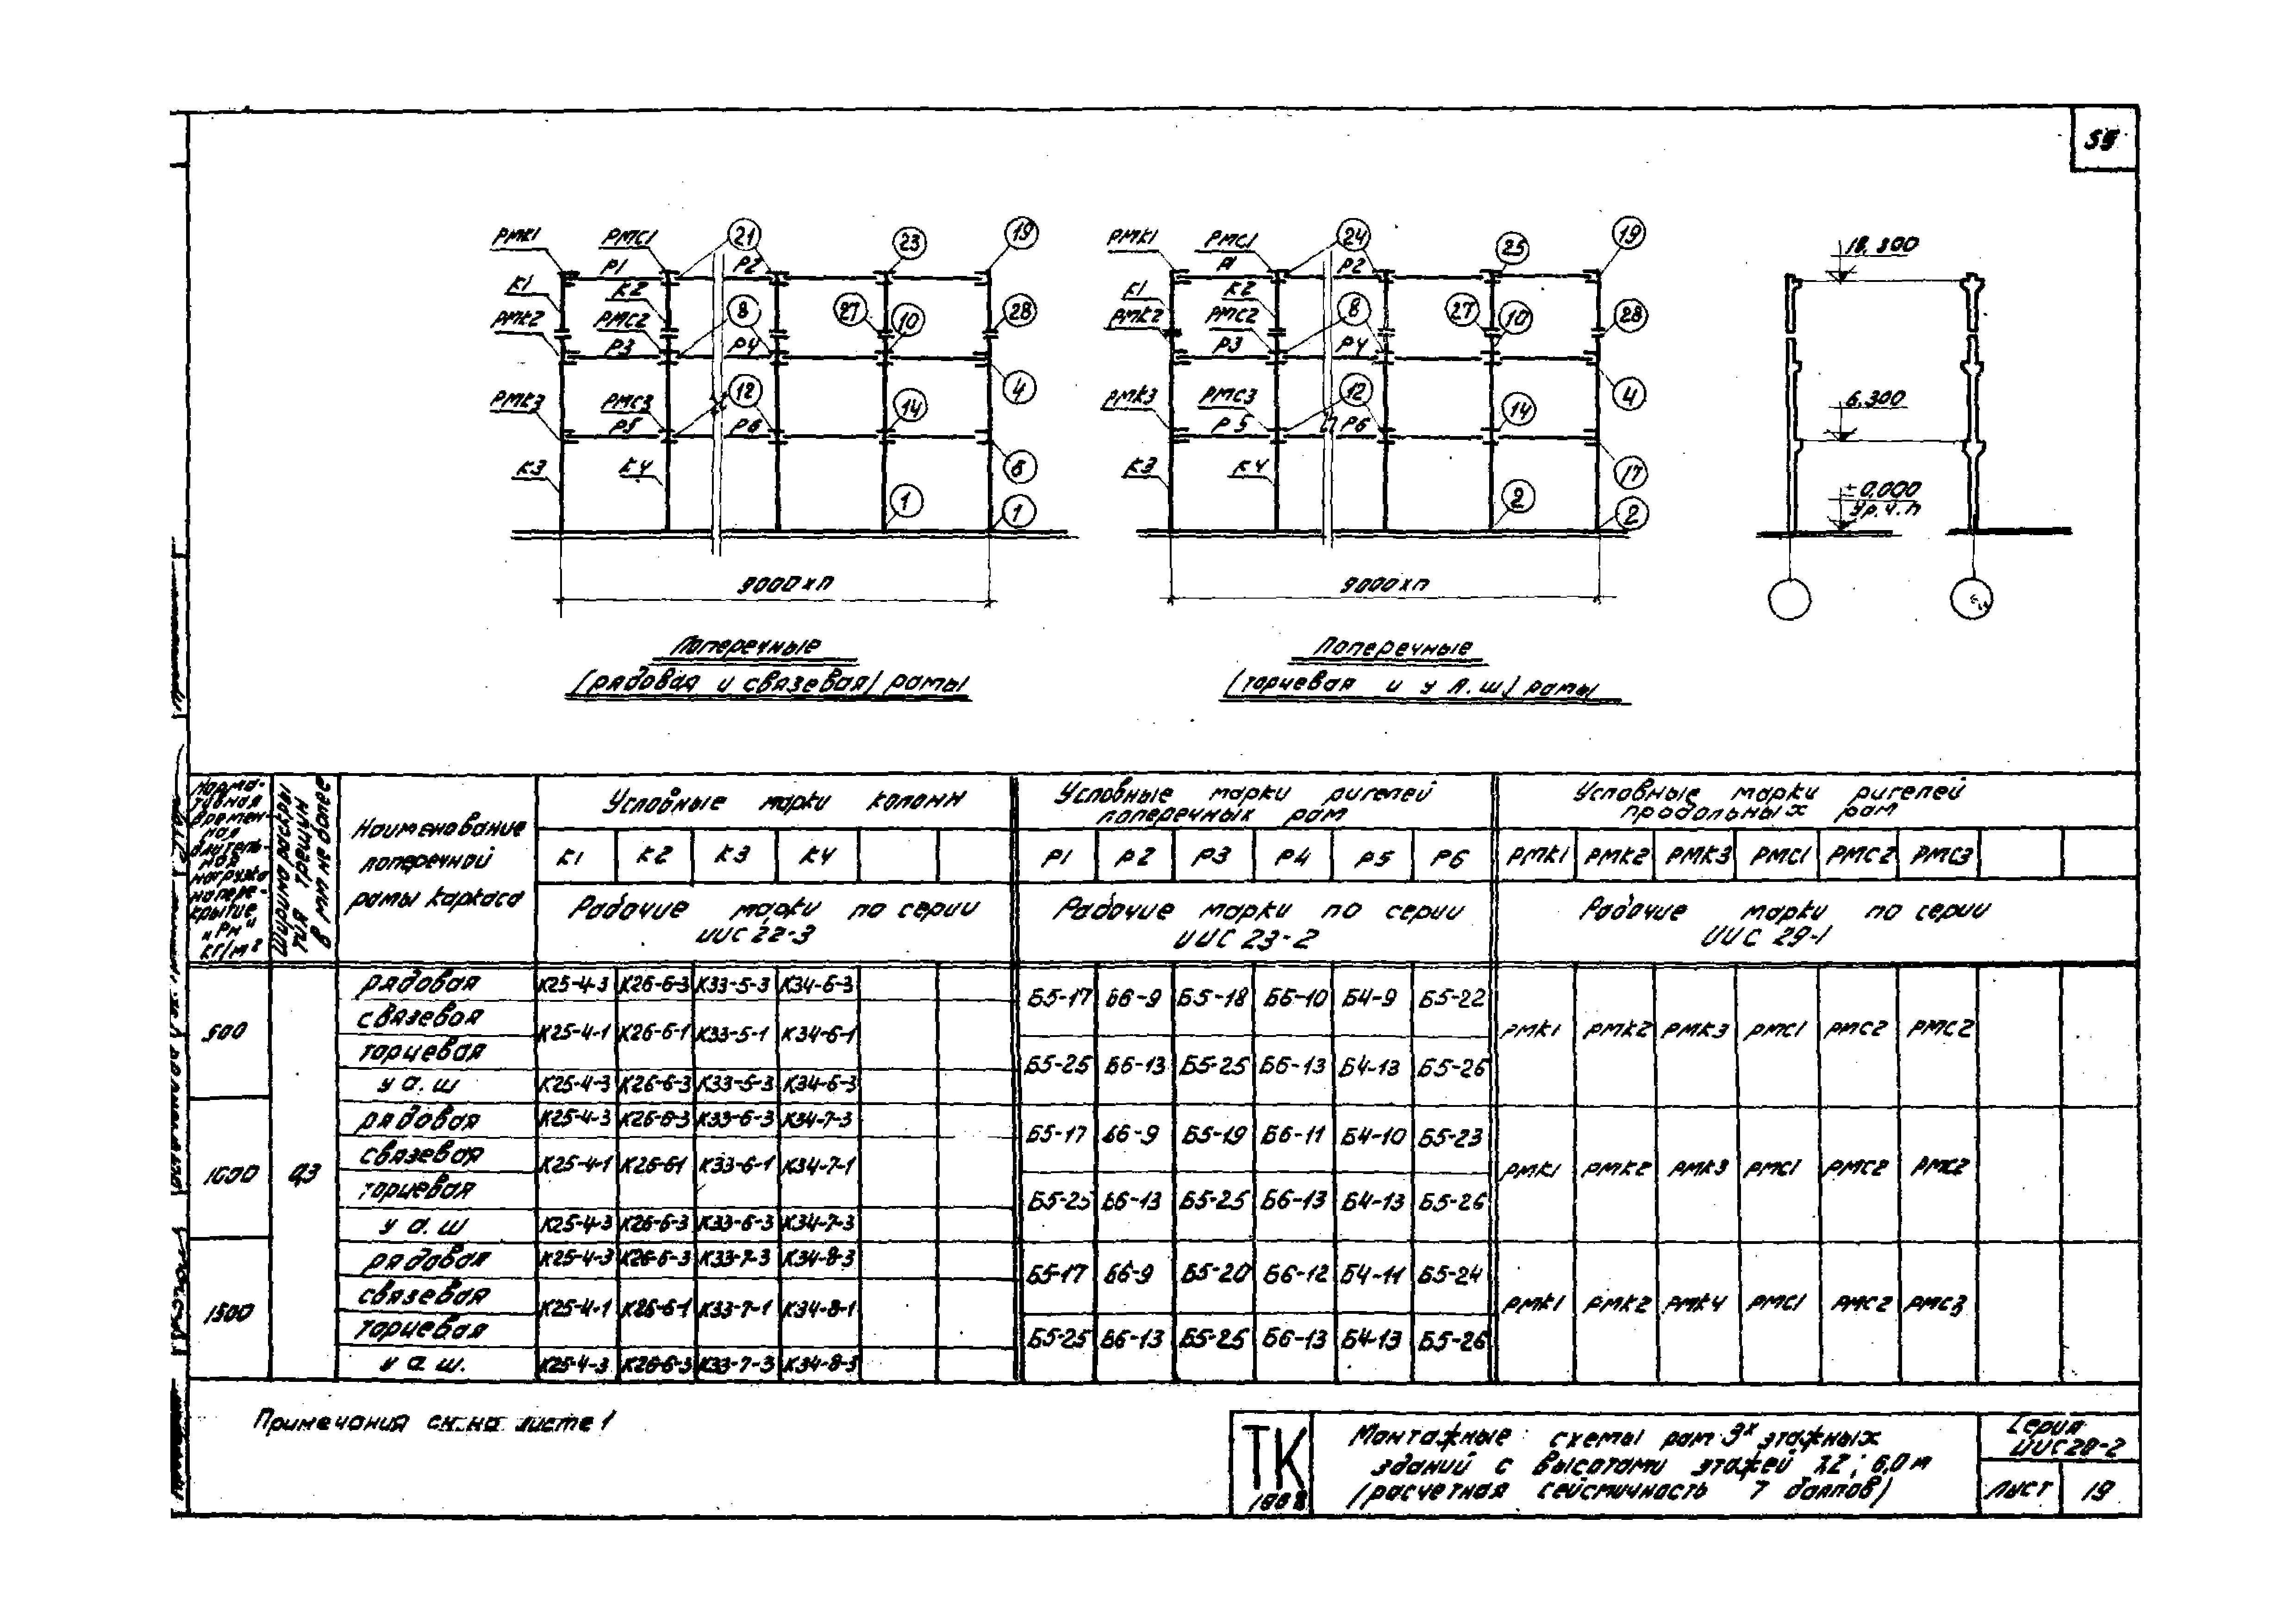 РМК1 РМС1 21 23 19
Р1 Р2
К1 К2
РМК2 РМС2 8 27 10 28
Р3 Р4
РМК3 РМС3 12 14 4
Р5 Р6
К3 К4 6
1 1
9000хп
Поперечные
(рядовая и связевая) рамы
РМК1 РМС1 24 25 19
Р1 Р2
К1 К2
РМК2 РМС2 8 27 10 28
Р3 Р4
РМК3 РМС3 12 14 4
Р5 Р6
К3 К4 17
2 2
9000хп
Поперечные
(торцевая и у а.ш) рамы
18.300
6.300
± 0.000
Ур.ч.п
Норма-
тивная
времен-
ная
длитель-
ная
нагрузка
на пере-
крытие
"Рн"
кг/м²
Ширина раскры
тия трещин
в мм не более
Наименование
поперечной
рамы каркаса
Условные марки колонн
К1 К2 К3 К4
Рабочие марки по серии
ИИС 22-3
Условные марки ригелей
поперечных рам
Р1 Р2 Р3 Р4 Р5 Р6
Рабочие марки по серии
ИИС 23-2
Условные марки ригелей
продольных рам
РМК1 РМК2 РМК3 РМС1 РМС2 РМС3
Рабочие марки по серии
ИИС 29-1
500
рядовая К25-4-3 К26-6-3 К33-5-3 К34-6-3
Б5-17 Б6-9 Б5-18 Б6-10 Б4-9 Б5-22
связевая
К25-4-1 К26-6-1 К33-5-1 К34-6-1
РМК1 РМК2 РМК3 РМС1 РМС2 РМС2
торцевая
Б5-25 Б6-13 Б5-25 Б6-13 Б4-13 Б5-26
у а.ш К25-4-3 К26-6-3 К33-5-3 К34-6-3
1000 0,3
рядовая К25-4-3 К26-6-3 К33-6-3 К34-7-3
Б5-17 Б6-9 Б5-19 Б6-11 Б4-10 Б5-23
связевая
К25-4-1 К26-61 К33-6-1 К34-7-1
РМК1 РМК2 РМК3 РМС1 РМС2 РМС2
торцевая
Б5-25 Б6-13 Б5-25 Б6-13 Б4-13 Б5-26
у а.ш К25-4-3 К26-6-3 К33-6-3 К34-7-3
1500
рядовая К25-4-3 К26-6-3 К33-7-3 К34-8-3
Б5-17 Б6-9 Б5-20 Б6-12 Б4-11 Б5-24
связевая
К25-4-1 К26-6-1 К33-7-1 К34-8-1
РМК1 РМК2 РМК4 РМС1 РМС2 РМС3
торцевая
Б5-25 Б6-13 Б5-25 Б6-13 Б4-13 Б5-26
у а.ш. К25-4-3 К26-6-3 К33-7-3 К34-8-3
Примечания см. на листе 1
ТК
Монтажные схемы рам 3х этажных
зданий с высотами этажей 7,2; 6,0 м
(расчетная сейсмичность 7 баллов)
Серия
ИИС 20-2
Лист 19